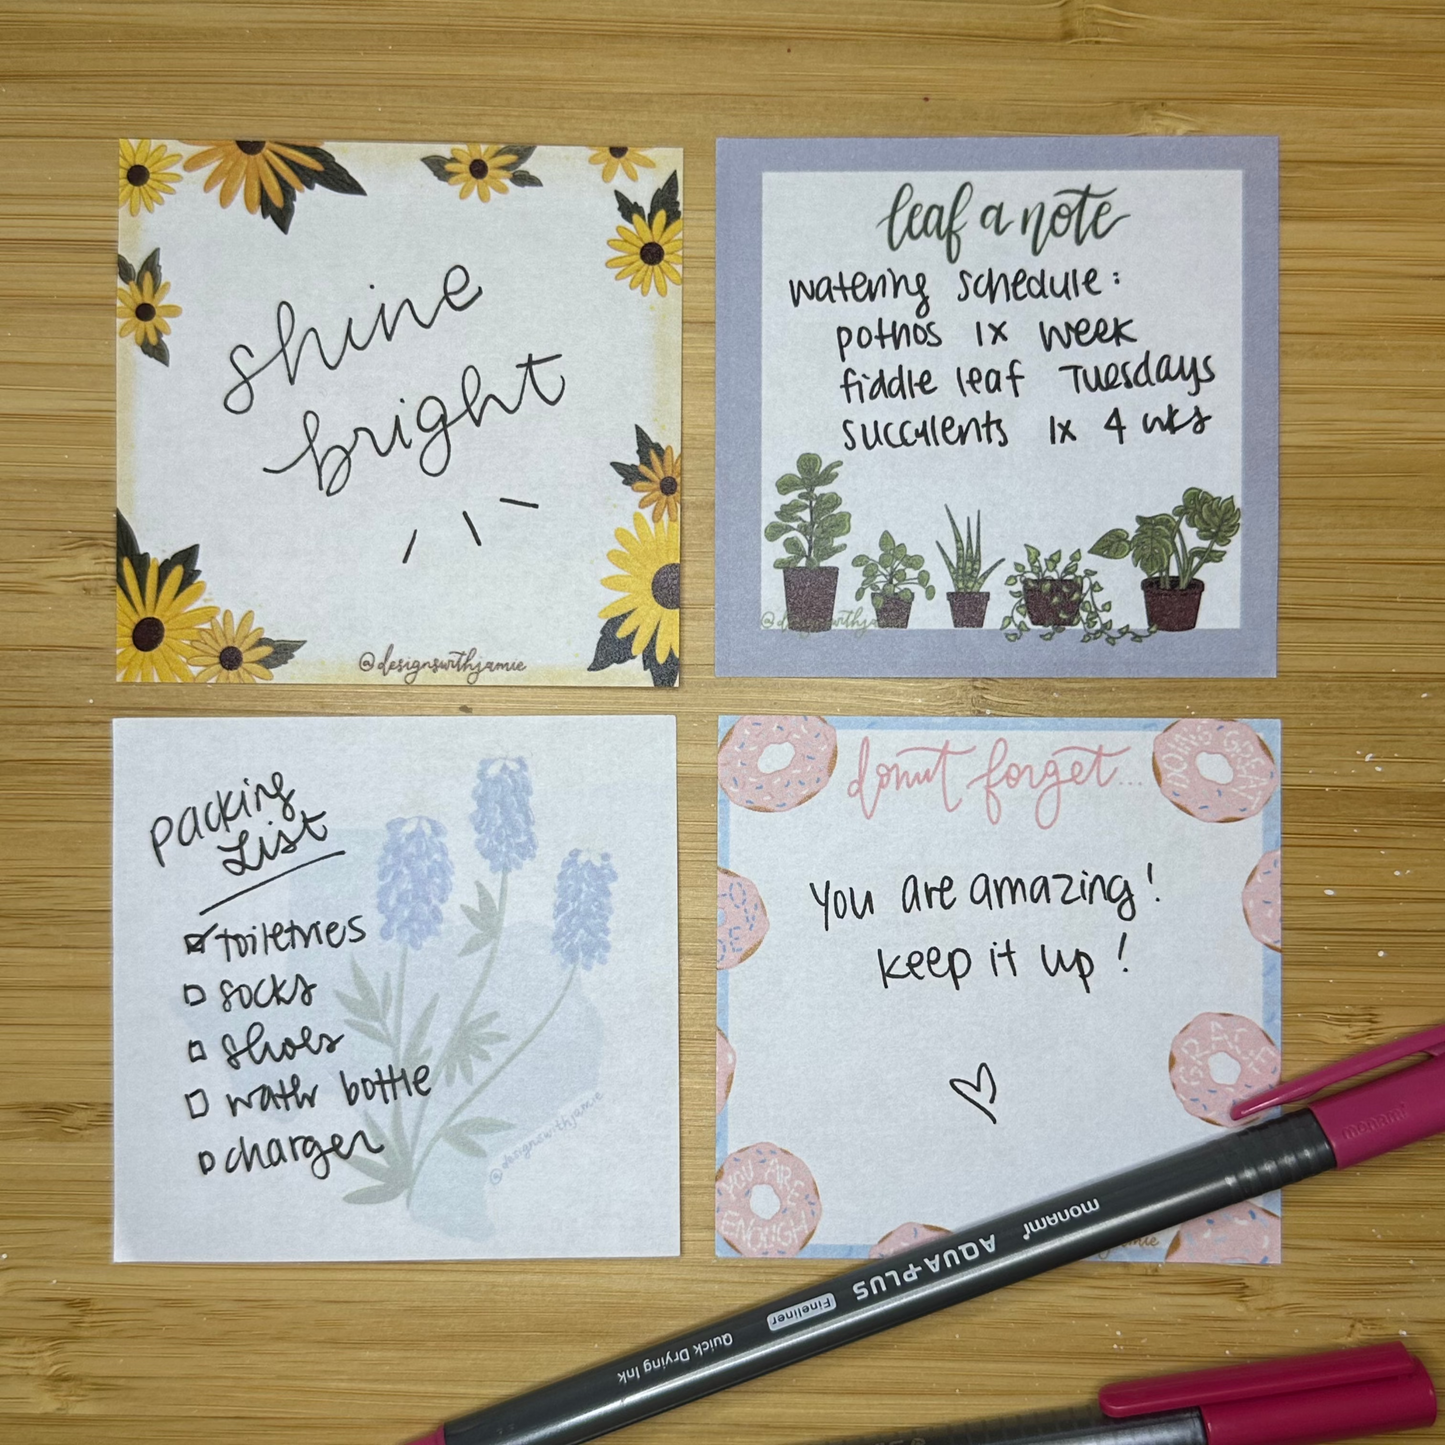 shine
bright
@designswithjamie
leaf a note
watering schedule:
pothos 1x week
fiddle leaf Tuesdays
succulents 1x 4 wks
@designswithjamie
packing
List
toiletries
socks
shoes
water bottle
charger
@designswithjamie
donut forget...
DOING GREAT
You are amazing!
keep it up!
GRACE
YOU ARE
ENOUGH
monami
monami
AQUA-PLUS
Fineliner
Quick Drying Ink